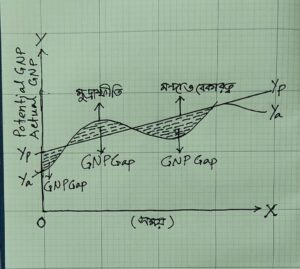 Y
Potential GNP
Actual GNP
মুদ্রাস্ফীতি
মন্দা ও বেকারত্ব
Yp
Ya
Yp
Ya
GNP Gap
GNP Gap
GNP Gap
O
X
(সময়)